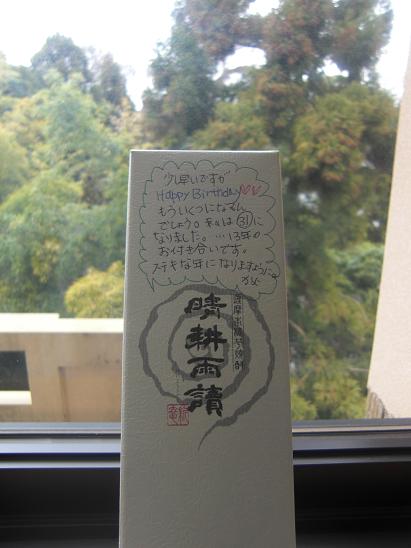 少し早いですが
Happy Birthday♡♡
もういくつになるん
でしょう。私は㉛に
なりました。…13年の
お付き合いです。
ステキな年になりますように。
薩摩本格芋焼酎
晴耕雨讀